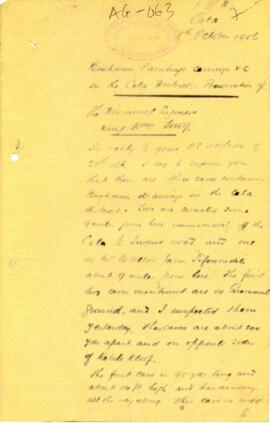 AG-063
Cala
October 1906
Bushman Paintings Carvings &c
in the Cala District. Preservation of
The Divisional Engineer
King Wms Town
In reply to your of
29th I beg to inform you
that there are three caves containing
Bushman drawings in the Cala
district. Two are situated some
9 miles from here immediately off the
Cala to Indwe road and one
on Mr farm
about 9 miles from here. The first
two caves mentioned are on Government
Ground, and I inspected them
yesterday. The caves are about 200
yds apart and on opposite sides
of Kloof.
The first cave is 95 yds long and
about 14 ft high and has drawings
all the way along. This cave is used